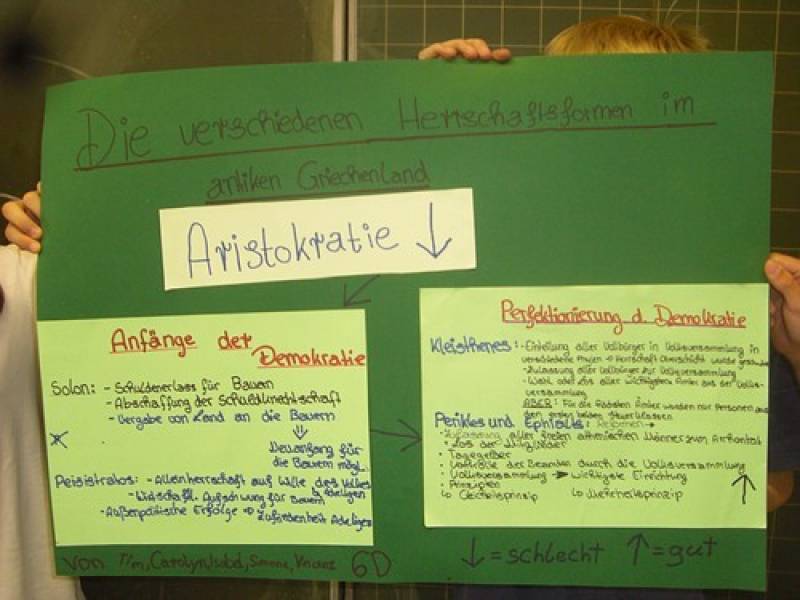 Die verschiedenen Herrschaftsformen im
antiken Griechenland
Aristokratie ↓
Anfänge der
Demokratie
Solon: - Schuldenerlass für Bauern
- Abschaffung der Schuldknechtschaft
- Vergabe von Land an die Bauern
⇓
Neuanfang für
die Bauern mögl.
Peisistratos: - Alleinherrschaft auf Wille des Volkes
- Wirtschaftl. Aufschwung für Bauern & Adeligen
- Außenpolitische Erfolge ⇒ Zufriedenheit Adeliger
Perfektionierung d. Demokratie
Kleisthenes: - Einteilung aller Vollbürger in Volksversammlung in
verschiedene → Herrschaft Oberschicht wurde
- Zulassung aller Vollbürger zur Volksversammlung
- Wahl oder Los aller wichtigsten Ämter aus der Volks-
versammlung
ABER: Für die Ämter wurden nur Personen aus
den ersten beiden Steuerklassen
Perikles und Ephialtes: Reformen →
- Zulassung aller freien athenischen Männer zum Archontat
• Los der Mitglieder
• Tagegelder
• Kontrolle der Beamten durch die Volksversammlung
• Volksversammlung → Wichtigste Einrichtung
• Prinzipien
↳ Gleichheitsprinzip ↳ Mehrheitsprinzip
↑
Von Tim, Carolyn, Isabel, Simone, Vincenz 6D
↓ = schlecht ↑ = gut